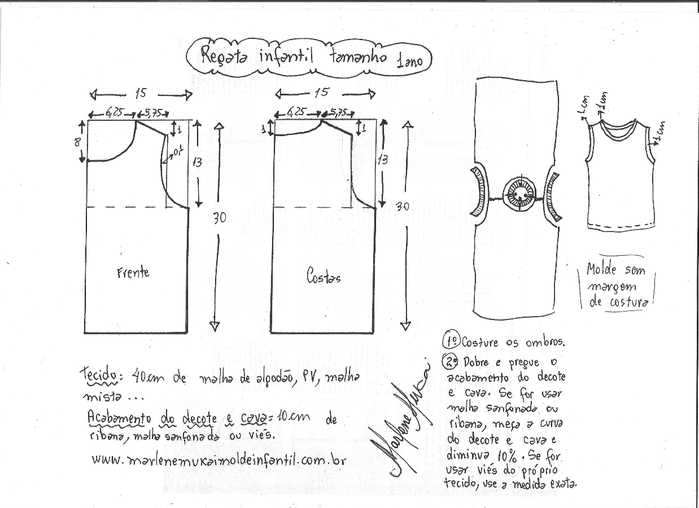 Regata infantil tamanho 1 ano
15
15
6,25
5,75
6,25
5,75
8
1
0,1
13
30
1
1
13
30
1cm
1cm
1cm
Frente
Costas
Molde sem
margem
de costura
1º Costure os ombros.
2º Dobre e pregue o
acabamento do decote
e cava. Se for usar
malha sanfonada ou
ribana, meça a curva
do decote e cava e
diminua 10%. Se for
usar viés do próprio
tecido, use a medida exata.
Tecido: 40cm de malha de algodão, PV, malha
mista...
Acabamento do decote e cava: 10cm de
ribana, malha sanfonada ou viés.
www.marlenemukaimoldeinfantil.com.br
Marlene Mukai